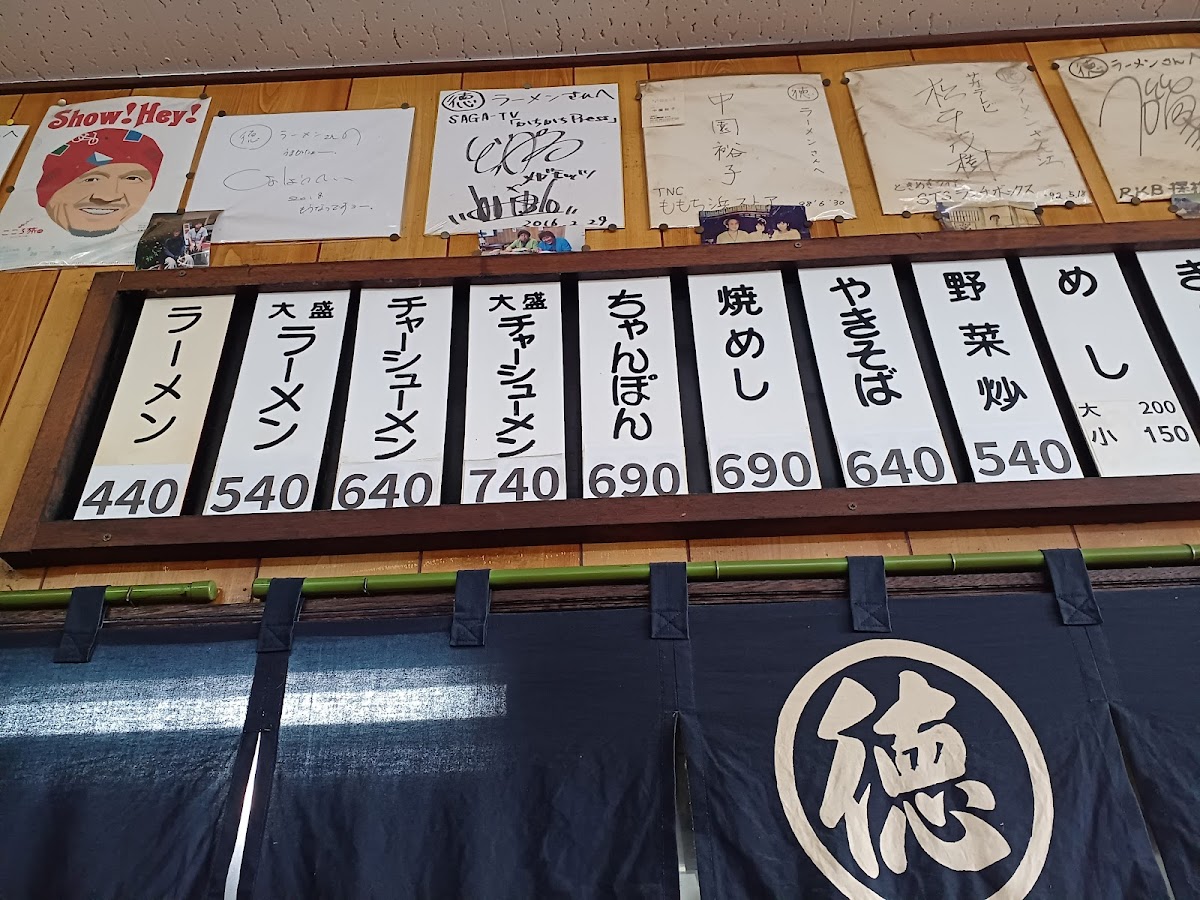 Show!Hey!
こころ旅
徳 ラーメンさんへ
2011.8
徳 ラーメンさんへ
SAGA-TV
かちかちPress
2016.2.29
徳 ラーメンさんへ
中園裕子
TNC
ももち浜ストア
28.6.30
ラーメンさん江
STSジュークボックス
92.5.18
徳 ラーメンさんへ
RKB
ラーメン
440
大盛
ラーメン
540
チャーシューメン
640
大盛
チャーシューメン
740
ちゃんぽん
690
焼めし
690
やきそば
640
野菜炒
540
めし
大 200
小 150
き
徳